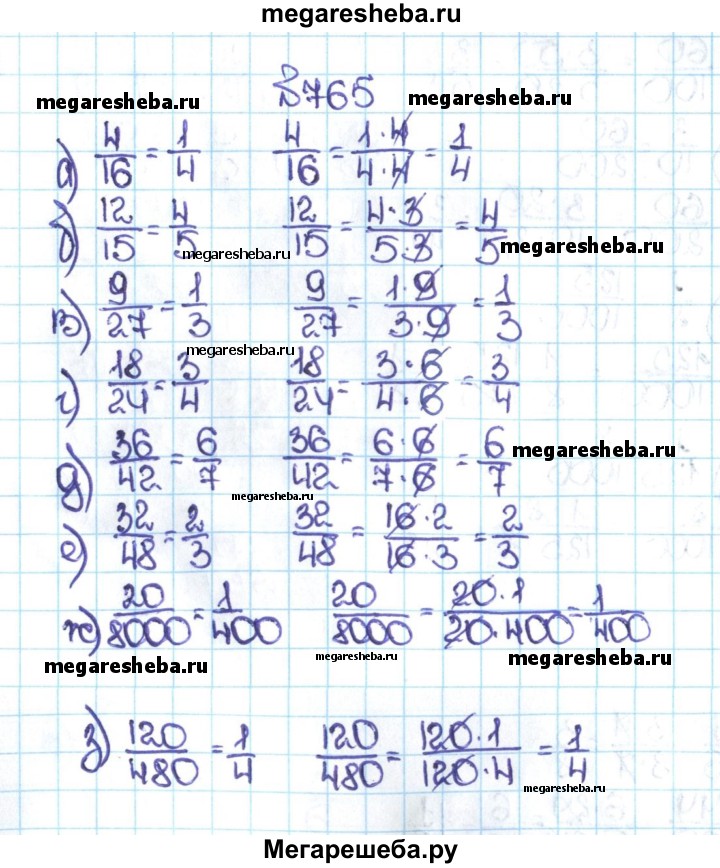 megaresheba.ru
№765
megaresheba.ru megaresheba.ru
а) 4/16 = 1/4 4/16 = 1·4/4·4 = 1/4
б) 12/15 = 4/5 12/15 = 4·3/5·3 = 4/5
megaresheba.ru megaresheba.ru
в) 9/27 = 1/3 9/27 = 1·9/3·9 = 1/3
megaresheba.ru
г) 18/24 = 3/4 18/24 = 3·6/4·6 = 3/4
д) 36/42 = 6/7 36/42 = 6·6/7·6 = 6/7
megaresheba.ru
megaresheba.ru
е) 32/48 = 2/3 32/48 = 16·2/16·3 = 2/3
ж) 20/8000 = 1/400 20/8000 = 20·1/20·400 = 1/400
megaresheba.ru megaresheba.ru megaresheba.ru
з) 120/480 = 1/4 120/480 = 120·1/120·4 = 1/4
megaresheba.ru
Мегарешеба.ру